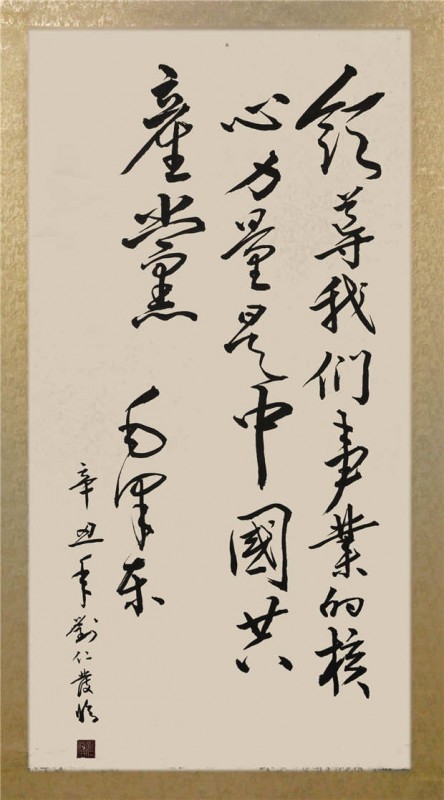 领导我们事业的核
心力量是中國共
產黨
毛泽东
辛丑年劉仁發臨